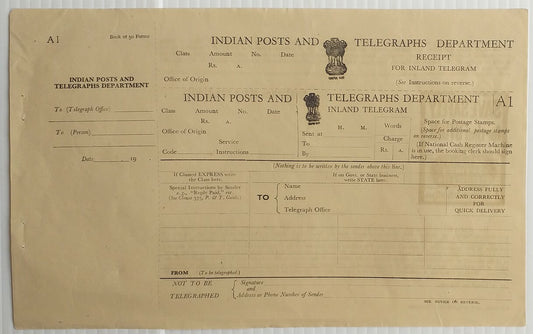 A1
Book of 50 Forms
INDIAN POSTS AND
TELEGRAPHS DEPARTMENT
To (Telegraph Office)
To (Person)
Date 19
INDIAN POSTS AND TELEGRAPHS DEPARTMENT
Class Amount No. Date
Rs. a.
RECEIPT
FOR INLAND TELEGRAM
Office of Origin
(See Instructions on reverse.)
INDIAN POSTS AND TELEGRAPHS DEPARTMENT A1
INLAND TELEGRAM
Class Amount No. Date
Rs. a.
Office of Origin
Service
Code Instructions
Sent at H. M.
To
By
Words
Charge
Rs. a.
Space for Postage Stamps.
(Space for additional postage stamps
on reverse.)
(If National Cash Register Machine
is in use, the booking clerk should sign
here.)
(Nothing is to be written by the sender above this line.)
If Classed EXPRESS write
the Class here.
If on Govt. or State business,
write STATE here.
Special Instructions by Sender
e.g., "Reply Paid," etc.
(See Clause 375, P. & T. Guide.)
TO
Name
Address
Telegraph Office
ADDRESS FULLY
AND CORRECTLY
FOR
QUICK DELIVERY
FROM (To be telegraphed.)
NOT TO BE
TELEGRAPHED
Signature
and
Address or Phone Number of Sender
SEE NOTICE ON REVERSE.